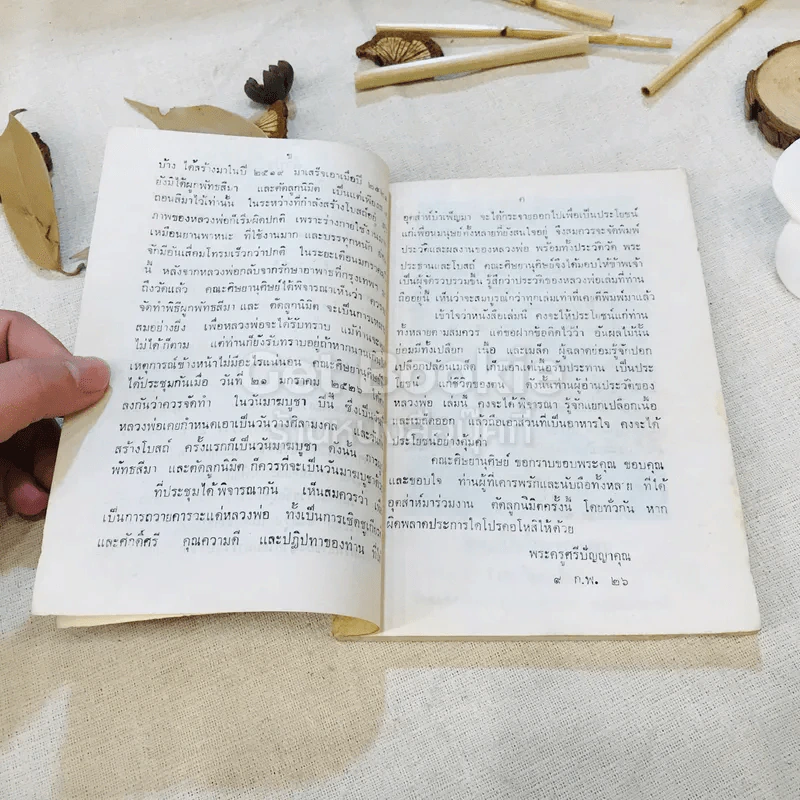 ข
บ้าง ได้สร้างมาในปี ๒๕๑๙ มาเสร็จเอาเมื่อปี
ยังมิได้ผูกพัทธสีมา และตัดลูกนิมิต เป็นแต่เพียง
ถอนสีมาไว้เท่านั้น ในระหว่างที่กำลังสร้างโบสถ์อยู่
ภาพของหลวงพ่อก็เริ่มผิดปกติ เพราะร่างกายใช้งาน
เหมือนยานพาหนะ ที่ใช้งานมาก และบรรทุกหนัก
จักมีอันเสื่อมโทรมเร็วกว่าปกติ ในระยะเดือนมกราคม
นี้ หลังจากหลวงพ่อกลับจากรักษาอาพาธที่กรุงเทพฯ
ถึงวัดแล้ว คณะศิษยานุศิษย์ได้พิจารณาเห็นว่า ควร
จัดทำพิธีผูกพัทธสีมาและ ตัดลูกนิมิต จะเป็นการเหมาะ
สมอย่างยิ่ง เพื่อหลวงพ่อจะได้รับทราบ แม้ท่านจะ
ไม่ได้ก็ตาม แต่ท่านก็ยังรับทราบอยู่ถ้าหากนานเกินไป
เหตุการณ์ข้างหน้าไม่มีอะไรแน่นอน คณะศิษยานุศิษย์
ได้ประชุมกันเมื่อ วันที่ ๒๑ มกราคม ๒๕๒๖
ลงกันว่าควรจัดทำ ในวันมาฆบูชา ปีนี้ ซึ่งเป็น
หลวงพ่อเคยกำหนดเอาเป็นวันวางศิลามงคล และ
สร้างโบสถ์ ครั้งแรกก็เป็นวันมาฆบูชา ดังนั้น การ
พัทธสีมา และตัดลูกนิมิต ก็ควรที่จะเป็นวันมาฆบูชา
ที่ประชุมได้พิจารณากัน เห็นสมควรว่า
เป็นการถวายคารวะแด่หลวงพ่อ ทั้งเป็นการเชิดชูเกียรติ
และศักดิ์ศรี คุณความดี และปฏิปทาของท่าน ที่ได้
ค
อุตส่าห์บำเพ็ญมา จะได้กระจายออกไปเพื่อเป็นประโยชน์
แก่เพื่อนมนุษย์ทั้งหลายที่ยังสนใจอยู่ จึงสมควรจะจัดพิมพ์
ประวัติและผลงานของหลวงพ่อ พร้อมทั้งประวัติวัด พระ
ประธานและโบสถ์ คณะศิษยานุศิษย์จึงได้มอบให้ข้าพเจ้า
เป็นผู้จัดรวบรวมขึ้น รู้สึกว่าประวัติของหลวงพ่อเล่มที่ท่าน
ถืออยู่นี้ เห็นว่าจะสมบูรณ์กว่าทุกเล่มเท่าที่เคยตีพิมพ์มาแล้ว
เข้าใจว่าหนังสือเล่มนี้ คงจะให้ประโยชน์แก่ท่าน
ทั้งหลายตามสมควร แต่ขอฝากข้อคิดไว้ว่า อันผลไม้นั้น
ย่อมมีทั้งเปลือก เนื้อ และเมล็ด ผู้ฉลาดย่อมรู้จักปอก
เปลือกปล้อนเมล็ด เก็บเอาแต่เนื้อรับประทาน เป็นประ
โยชน์ แก่ชีวิตของตน ฉะนั้นท่านผู้อ่านประวัติของ
หลวงพ่อ เล่มนี้ก็ คงจะได้พิจารณา รู้จักแยกเปลือกเนื้อ
และเมล็ดออก แล้วถือเอาส่วนที่เป็นอาหารใจ คงจะได้
ประโยชน์อย่างคุ้มค่า
คณะศิษยานุศิษย์ ขอกราบขอบพระคุณ ขอบคุณ
และขอบใจ ท่านผู้ที่เคารพรักและนับถือทั้งหลาย ที่ได้
อุตส่าห์มาร่วมงาน ตัดลูกนิมิตครั้งนี้ โดยทั่วกัน หาก
ผิดพลาดประการใดโปรดอโหสิให้ด้วย
พระครูศรีปัญญาคุณ
๙ ก.พ. ๒๖